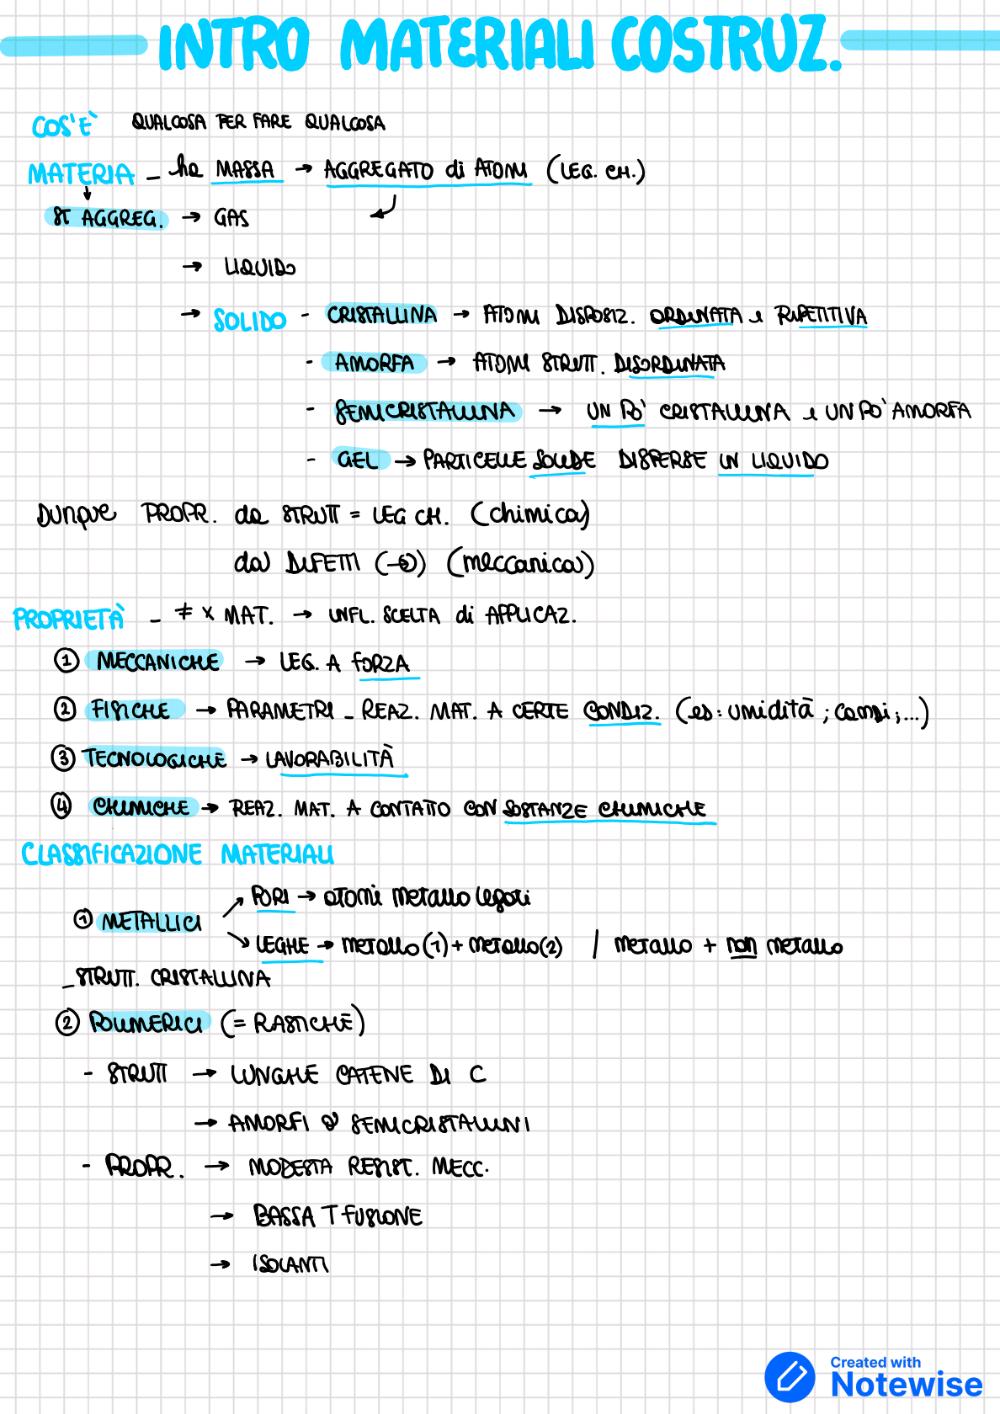 INTRO MATERIALI COSTRUZ.
COS'È QUALCOSA PER FARE QUALCOSA
MATERIA _ ha MASSA → AGGREGATO di ATOMI (LEG. CH.)
ST AGGREG. → GAS
→ LIQUIDO
→ SOLIDO - CRISTALLINA → ATOMI DISPOSIZ. ORDINATA e RIPETITIVA
- AMORFA → ATOMI STRUTT. DISORDINATA
- SEMICRISTALLINA → UN PO' CRISTALLINA e UN PO' AMORFA
- GEL → PARTICELLE SOLIDE DISPERSE IN LIQUIDO
DUNQUE PROPR. da STRUTT = LEG CH. (chimica)
dai DIFETTI (meccanica)
PROPRIETÀ _ ≠ x MAT. → INFL. SCELTA di APPLICAZ.
① MECCANICHE → LEG. A FORZA
② FISICHE → PARAMETRI _ REAZ. MAT. A CERTE CONDIZ. (es: umidità ; campi ; ...)
③ TECNOLOGICHE → LAVORABILITÀ
④ CHIMICHE → REAZ. MAT. A CONTATTO CON SOSTANZE CHIMICHE
CLASSIFICAZIONE MATERIALI
① METALLICI
PURI → atomi metallo legati
LEGHE → metallo (1) + metallo (2) / metallo + non metallo
_ STRUTT. CRISTALLINA
② POLIMERICI (= PLASTICHE)
- STRUTT → LUNGHE CATENE DI C
→ AMORFI o SEMICRISTALLINI
- PROPR. → MODESTA RESIST. MECC.
→ BASSA T FUSIONE
→ ISOLANTI
Created with
Notewise